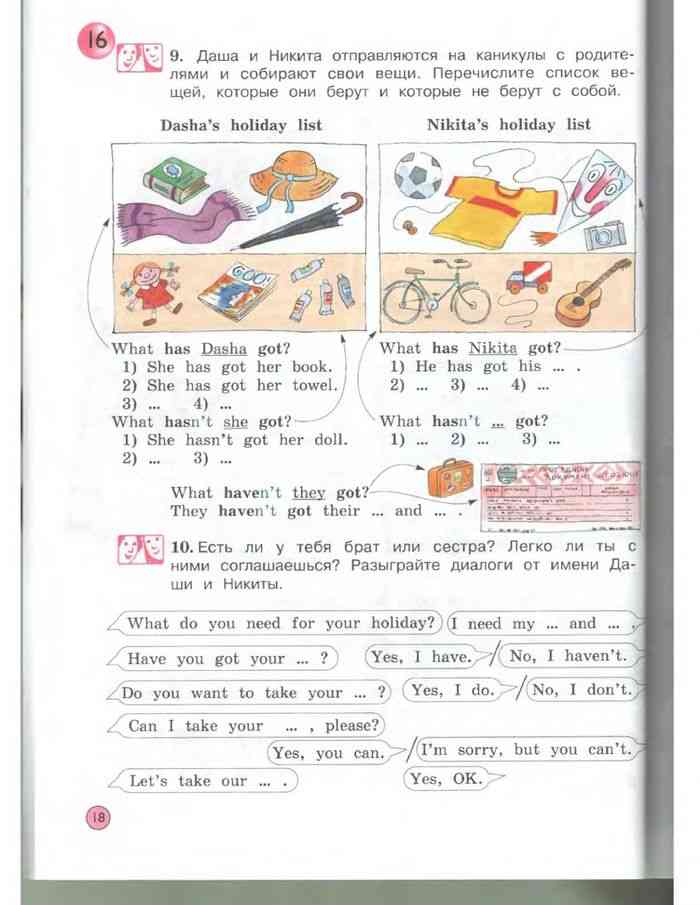 16
9. Даша и Никита отправляются на каникулы с родите-
лями и собирают свои вещи. Перечислите список ве-
щей, которые они берут и которые не берут с собой.
Dasha's holiday list
Nikita's holiday list
What has Dasha got?
1) She has got her book.
2) She has got her towel.
3) ... 4) ...
What hasn't she got?
1) She hasn't got her doll.
2) ... 3) ...
What has Nikita got?
1) He has got his ... .
2) ... 3) ... 4) ...
What hasn't ... got?
1) ... 2) ... 3) ...
What haven't they got?
They haven't got their ... and ... .
10. Есть ли у тебя брат или сестра? Легко ли ты с
ними соглашаешься? Разыграйте диалоги от имени Да-
ши и Никиты.
What do you need for your holiday? I need my ... and ... .
Have you got your ... ? Yes, I have. / No, I haven't.
Do you want to take your ... ? Yes, I do. / No, I don't.
Can I take your ... , please?
Yes, you can. / I'm sorry, but you can't.
Let's take our ... . Yes, OK.
18